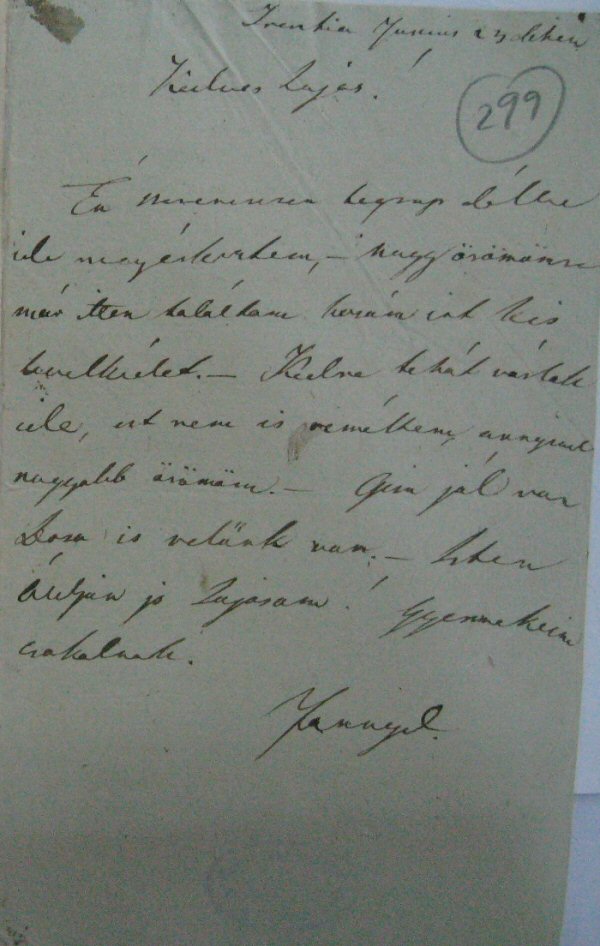 Junius 23dikán
Kedves Lajos!
299
Én szerencsésen tegnap délbe
ide megérkeztem, – nagy örömömre
már itten találtam hozzám írt kis
levelkédet. – Kedve tehát várlak
ide, ezt nem is reméltem, annyival
nagyobb örömöm. – Géza jól van
is velünk van. – Isten
áldjon jó Lajosom! Gyermekeim
csókolnak.
Fannyd.